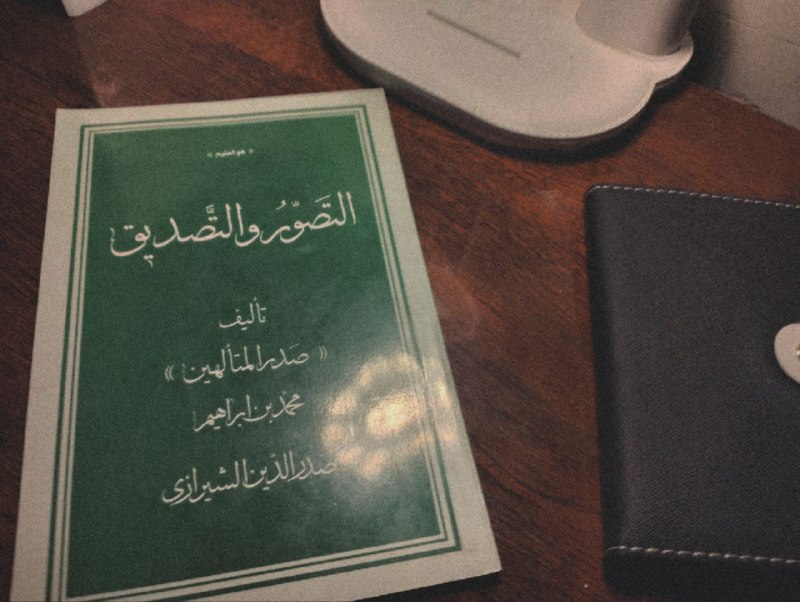 « هوالعلیم »
التَصَوّرُ والتَّصدیق
تألیف
« صَدرالمتألهین »
محمّد بن ابراهیم
صدرالدّین الشیرازی